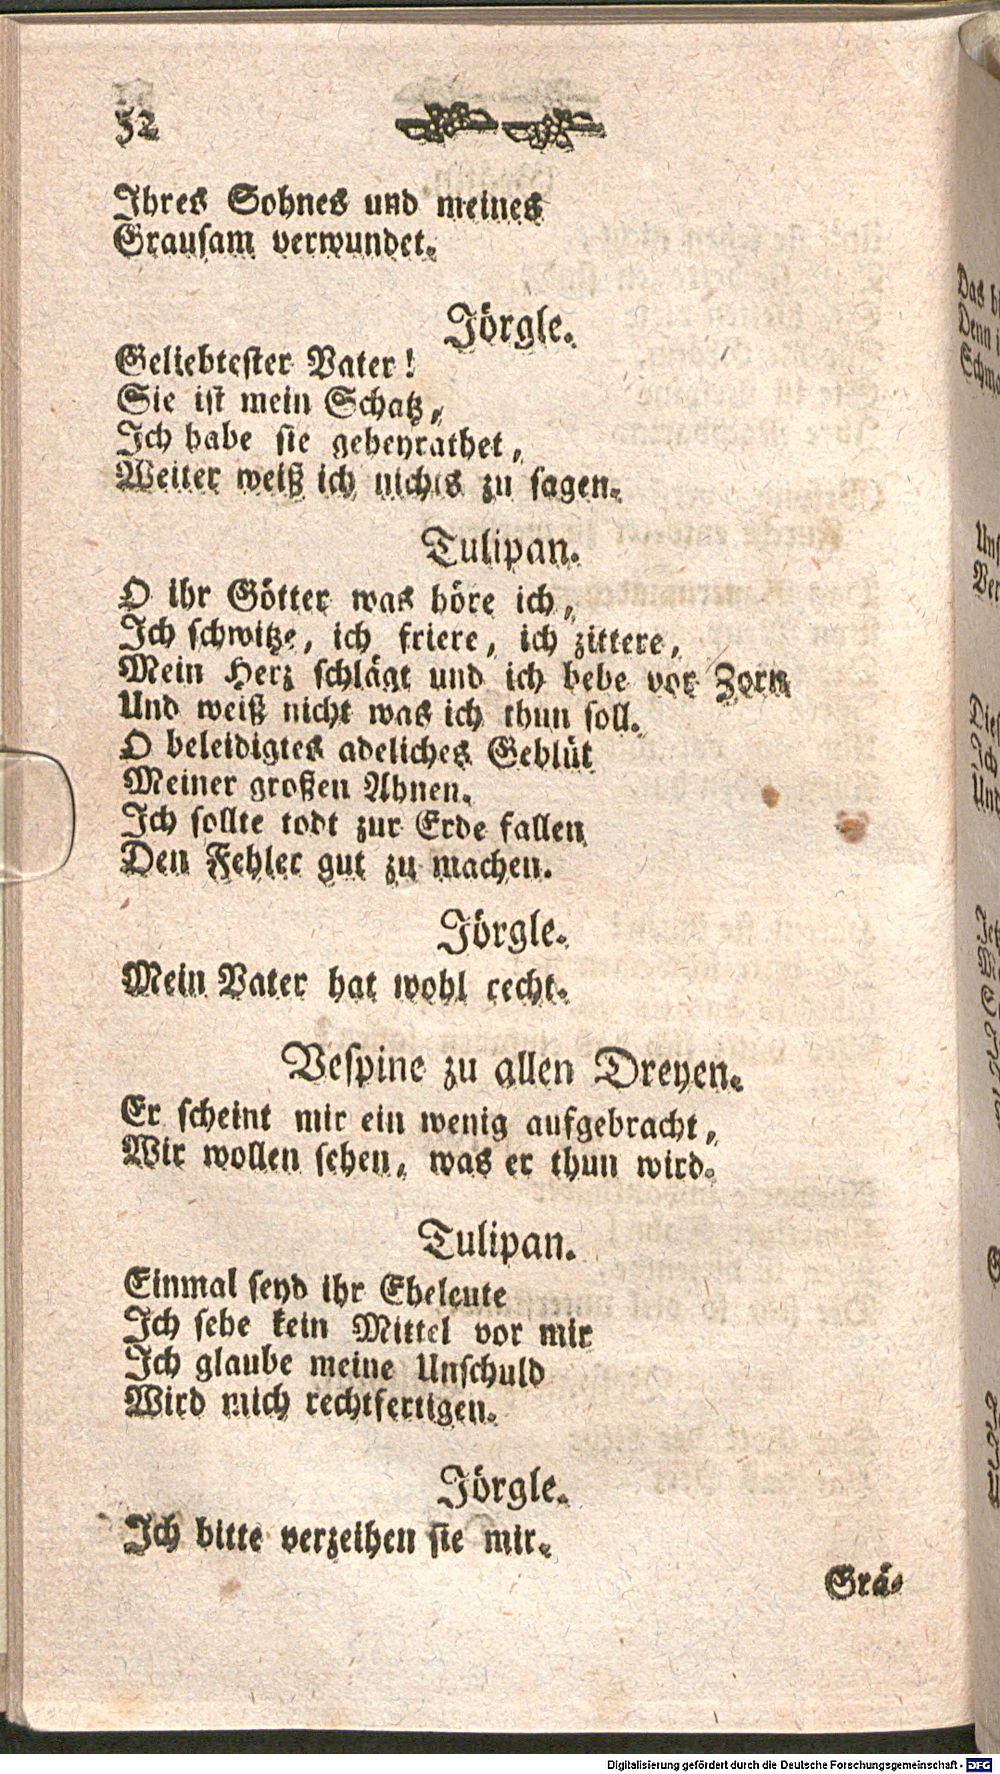 52
Ihres Sohnes und meines
Grausam verwundet.
Jörgle.
Geliebtester Vater!
Sie ist mein Schatz,
Ich habe sie geheyrathet,
Weiter weiß ich nichts zu sagen.
Tulipan.
O ihr Götter was höre ich,
Ich schwitze, ich friere, ich zittere,
Mein Herz schlägt und ich bebe vor Zorn
Und weiß nicht was ich thun soll.
O beleidigtes adeliches Geblüt
Meiner großen Ahnen.
Ich sollte todt zur Erde fallen
Den Fehler gut zu machen.
Jörgle.
Mein Vater hat wohl recht.
Vespine zu allen Dreyen.
Er scheint mir ein wenig aufgebracht,
Wir wollen sehen, was er thun wird.
Tulipan.
Einmal seyd ihr Eheleute
Ich sehe kein Mittel vor mir
Ich glaube meine Unschuld
Wird mich rechtfertigen.
Jörgle.
Ich bitte verzeihen sie mir.
Grä-
Das
Denn
Ich
Und
Digitalisierung gefördert durch die Deutsche Forschungsgemeinschaft - DFG